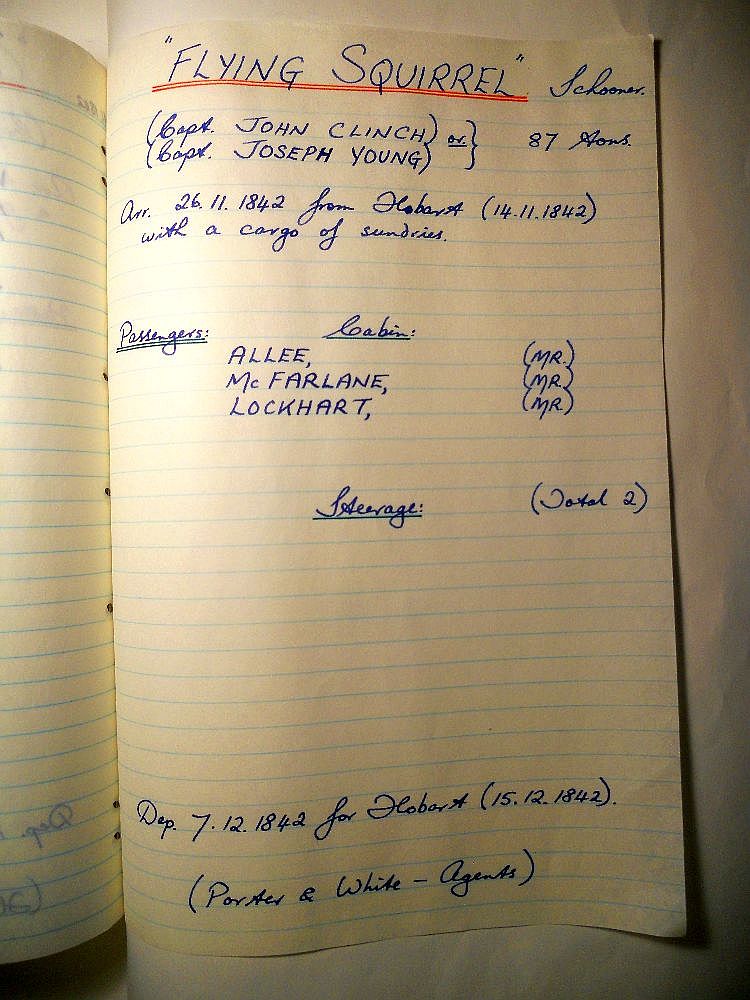 "FLYING SQUIRREL" Schooner.
(Capt. JOHN CLINCH) or } 87 tons.
(Capt. JOSEPH YOUNG)
Arr. 26.11.1842 from Hobart (14.11.1842)
with a cargo of sundries.
Passengers: Cabin:
ALLEE, (MR.)
McFARLANE, (MR.)
LOCKHART, (MR)
Steerage: (Total 2)
Dep. 7.12.1842 for Hobart (15.12.1842).
(Porter & White - Agents)